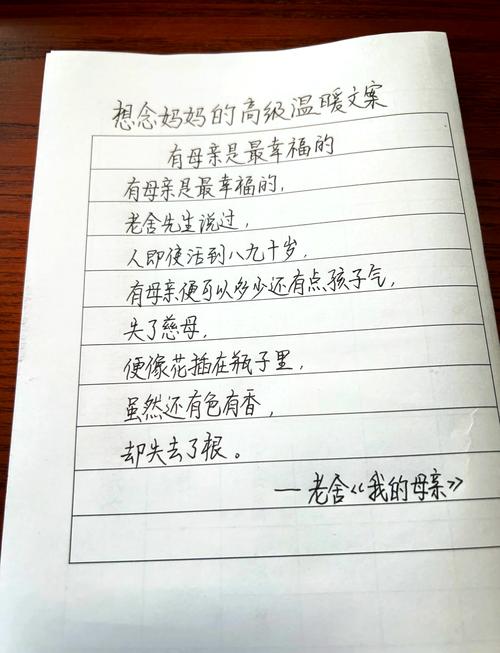 想念妈妈的高级温暖文案
有母亲是最幸福的
有母亲是最幸福的,
老舍先生说过,
人即使活到八九十岁,
有母亲便可以多少还有点孩子气,
失了慈母,
便像花插在瓶子里,
虽然还有色有香,
却失去了根。
—老舍《我的母亲》